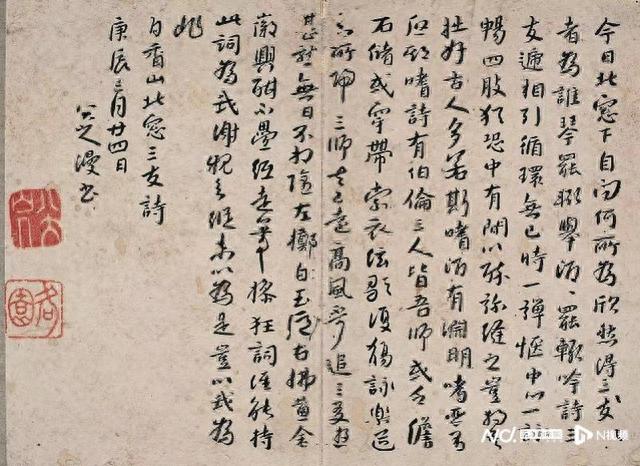 今日北窓下自问何所為欣然得三友、、
者為誰琴罷輒舉酒、罷輒吟詩三
友遞相引循環無已時一彈愜中心一詠
暢四肢犹恐中有間以醉弥縫之豈獨吾
拙好古人多若斯嗜酒有淵明嗜琴有
启期嗜詩有伯倫三人皆吾師或乏儋
石儲或穿帶索衣弦歌復觴詠樂道
知所歸三師去已遠高風不可追三友遊
甚熟無日不相随左擲白玉卮右拂黃金
徽興酣不疊紙走筆操狂詞誰能持
此詞為我謝親知縱未以為是豈以我為
非
白香山北窓三友詩
庚辰三月廿四日
漫書
N视频